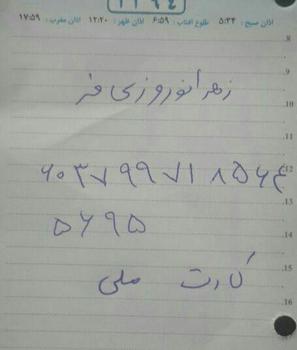 اذان صبح: ۵:۳۴ طلوع آفتاب: ۶:۵۹ اذان ظهر: ۱۲:۲۰ اذان مغرب: ۱۷:۵۹
8
9
زهرا نوروزی فر
10
11
۶۰۳۷۹۹۷۱۸۵۶۴
12
13
۵۶۹۵
14
کارت ملی
15
16